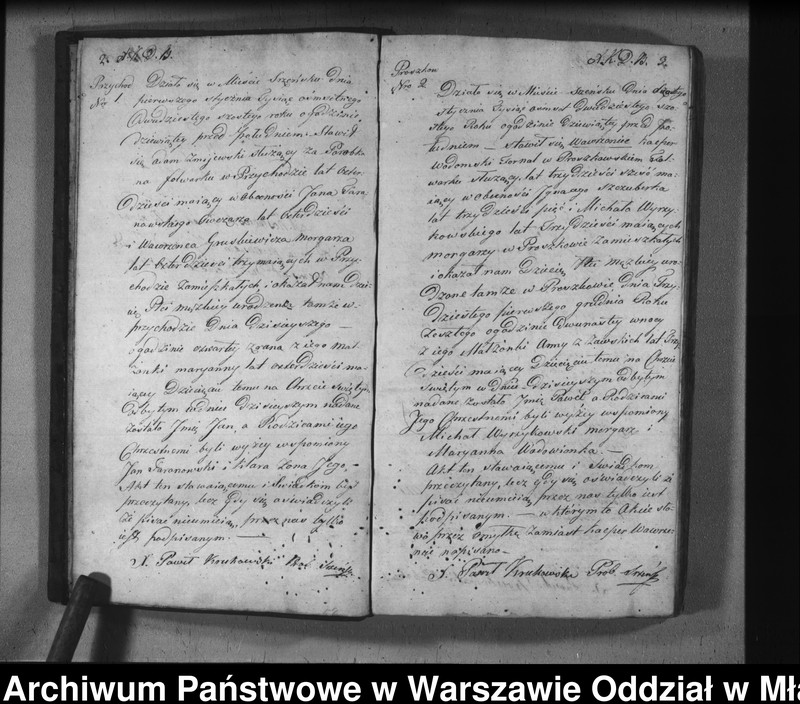 2. A.K.D.B.
Przychod
Nro 1
Działo się w Mieście Szreńsku dnia
pierwszego stycznia tysiąc ośmsetnego
Dwudziestego szostego roku o godzinie
dziewiątey przed południem. Stawił
się Adam Zmijewski służący za Parobka
na folwarku w Przychodzie lat czter-
dzieści maiący w obecności Jana Tara
nowskiego Owczarza lat czterdzieści
i Wawrzeńca Gruskiewicza morgarza
lat czterdzieści trzy maiących w Przy-
chodzie zamieszkałych i okazał nam dzie-
cię Płci męzkiey urodzone tamże w
przychodzie Dnia Dzisieyszego —
o godzinie czwartey zrana z iego Mał
żonki maryanny lat czterdzieści ma-
iącey Dziecięciu temu na Chrzcie Świętym
Odbytym w dniu dzisieyszym nadane
zostało Jmię Jan, a Rodzicami iego
Chrzestnemi byli wyżey wspomniony
Jan Taranowski i Klara żona Jego, —
Akt ten stawaiącemu i Świadkom był
przeczytany, lecz gdy się oświadczyli
iż pisać nieumieią, przez nas tylko
iest podpisanym. —
X. Paweł Krukowski Prob Szreńs
A.K.D.B. 2.
Proszkow
Nro 2
Działo się w Mieście Szreńsku Dnia szostego
stycznia tysiąc ośmset Dwudziestego szo-
stego Roku o godzinie dziewiątey przed Po-
łudniem — Stawił się Wawrzeniec Kacper
Wodomski fornal w Proszkowskiem Fol-
warku służący lat trzydzieści sześć ma-
iący w obecności Jgnacego Szczuberka
lat trzydzieści pięć i Michała Wyrzy-
kowskiego lat trzydzieści maiących
morgarzy w Proszkowie zamieszkałych
i okazał nam Dziecię Płci męzkiey uro-
dzone tamże w Proszkowie Dnia Trzy-
dziestego pierwszego grudnia Roku
zeszłego o godzinie Dwunastey wnocy
z iego Małżonki Anny z Zawskich lat Trzy
dzieści maiącey Dziecięciu temu na Chrzcie
Świętym w Dniu dzisieyszym odbytym
nadane zostało Jmię Paweł a Rodzicami
Jego Chrzestnemi byli wyżey wspomniony
Michał Wyrzykowski morgarz i
Maryanna Wodomska —
Akt ten stawaiącemu i Swiadkom
przeczytany, lecz gdy się oświadczyli iż
pisać nieumieią przez nas tylko iest
podpisanym. — w którym to Akcie sło-
wo przez omyłkę zamiast Kacper Wawrze-
niec napisano —
X. Paweł Krukowski Prob. Szreńs
Archiwum Państwowe w Warszawie Oddział w Mła